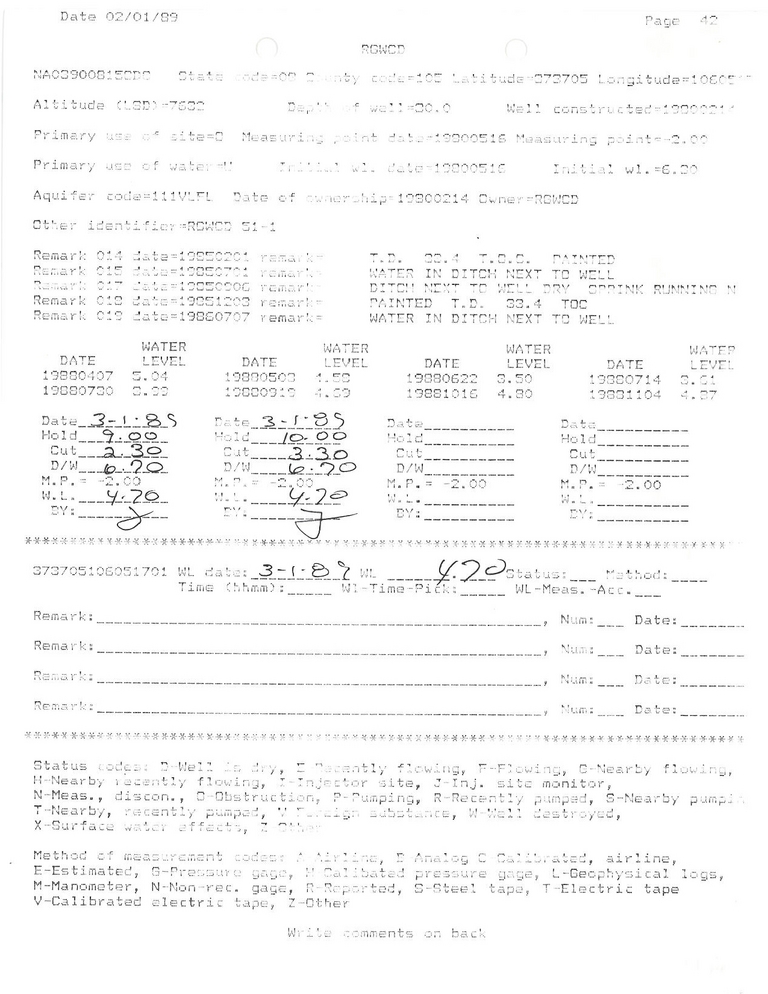 Date 02/01/89 Page 42
RGWCD
NA03900815CDC State code=08 County code=105 Latitude=373705 Longitude=10605
Altitude (LSD)=7632 Depth of well=30.0 Well constructed=19800214
Primary use of site=O Measuring point date=19800516 Measuring point=-2.00
Primary use of water=U Initial wl. date=19800516 Initial wl.=6.30
Aquifer code=111VLFL Date of ownership=19800214 Owner=RGWCD
Other identifier=RGWCD 51-1
Remark 014 date=19850201 remark= T.D. 33.4 T.O.C. PAINTED
Remark 015 date=19850701 remark= WATER IN DITCH NEXT TO WELL
Remark 017 date=19850906 remark= DITCH NEXT TO WELL DRY SPRINK RUNNING N
Remark 018 date=19851203 remark= PAINTED T.D. 33.4 TOC
Remark 019 date=19860707 remark= WATER IN DITCH NEXT TO WELL
WATER WATER WATER WATER
DATE LEVEL DATE LEVEL DATE LEVEL DATE LEVEL
19880407 5.04 19880503 4.58 19880622 3.50 19880714 3.61
19880730 3.99 19880919 4.69 19881016 4.80 19881104 4.87
Date 3-1-89 Date 3-1-89 Date Date
Hold 9.00 Hold 10.00 Hold Hold
Cut 2.30 Cut 3.30 Cut Cut
D/W 6.70 D/W 6.70 D/W D/W
M.P.= -2.00 M.P.= -2.00 M.P.= -2.00 M.P.= -2.00
W.L. 4.70 W.L. 4.70 W.L. W.L.
BY: BY: BY: BY:
373705106051701 WL date: 3-1-89 WL 4.70 Status:___ Method:____
Time (hhmm):_____ Wl-Time-Pick:_____ WL-Meas.-Acc.___
Remark: , Num:___ Date:
Remark: , Num:___ Date:
Remark: , Num:___ Date:
Remark: , Num:___ Date:
Status codes: D-Well is dry, E Recently flowing, F-Flowing, G-Nearby flowing,
H-Nearby recently flowing, I-Injector site, J-Inj. site monitor,
N-Meas., discon., O-Obstruction, P-Pumping, R-Recently pumped, S-Nearby pumpin
T-Nearby, recently pumped, V Foreign substance, W-Well destroyed,
X-Surface water effects, Z Other
Method of measurement codes: A Airline, B Analog C Calibrated, airline,
E-Estimated, G-Pressure gage, H Calibated pressure gage, L-Geophysical logs,
M-Manometer, N-Non-rec. gage, R-Reported, S-Steel tape, T-Electric tape
V-Calibrated electric tape, Z-Other
Write comments on back